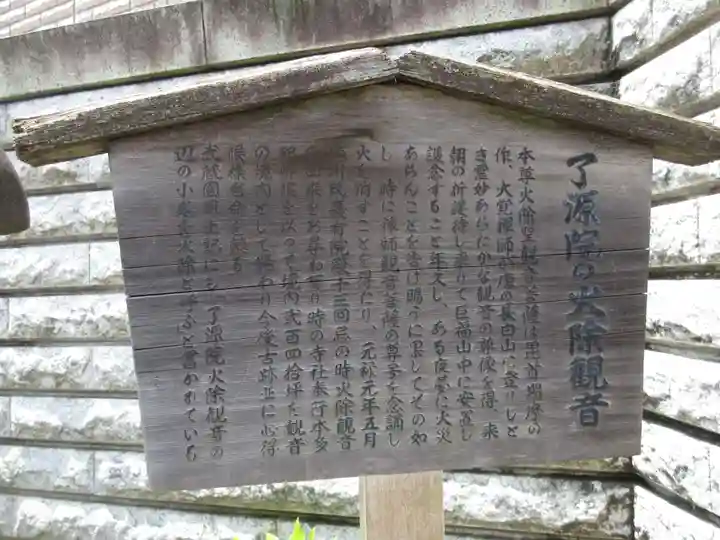 了源院の火除観音
本尊火除聖観音菩薩は毘首羯摩の
作、大覚禅師が唐の長白山に登りしと
き霊妙あらたかな観音の雛像を得、来
朝の折護持し来りて巨福山中に安置し
護念すること年久し、ある夜夢に火災
あらんことを告げ賜うに果してその如
し 時に禅師観音菩薩の尊号を念誦し
火を消すことを得たり、元弘元年五月
十三回忌の時火除観音
の由来をお尋ねあり時の寺社奉行本多
を以って境内弐百四拾坪を観音
の境内として賜わり今後古跡並に心得
候様
武蔵国風土記にも「了源院火除観音の
辺の小名を火除と呼ぶと言われている